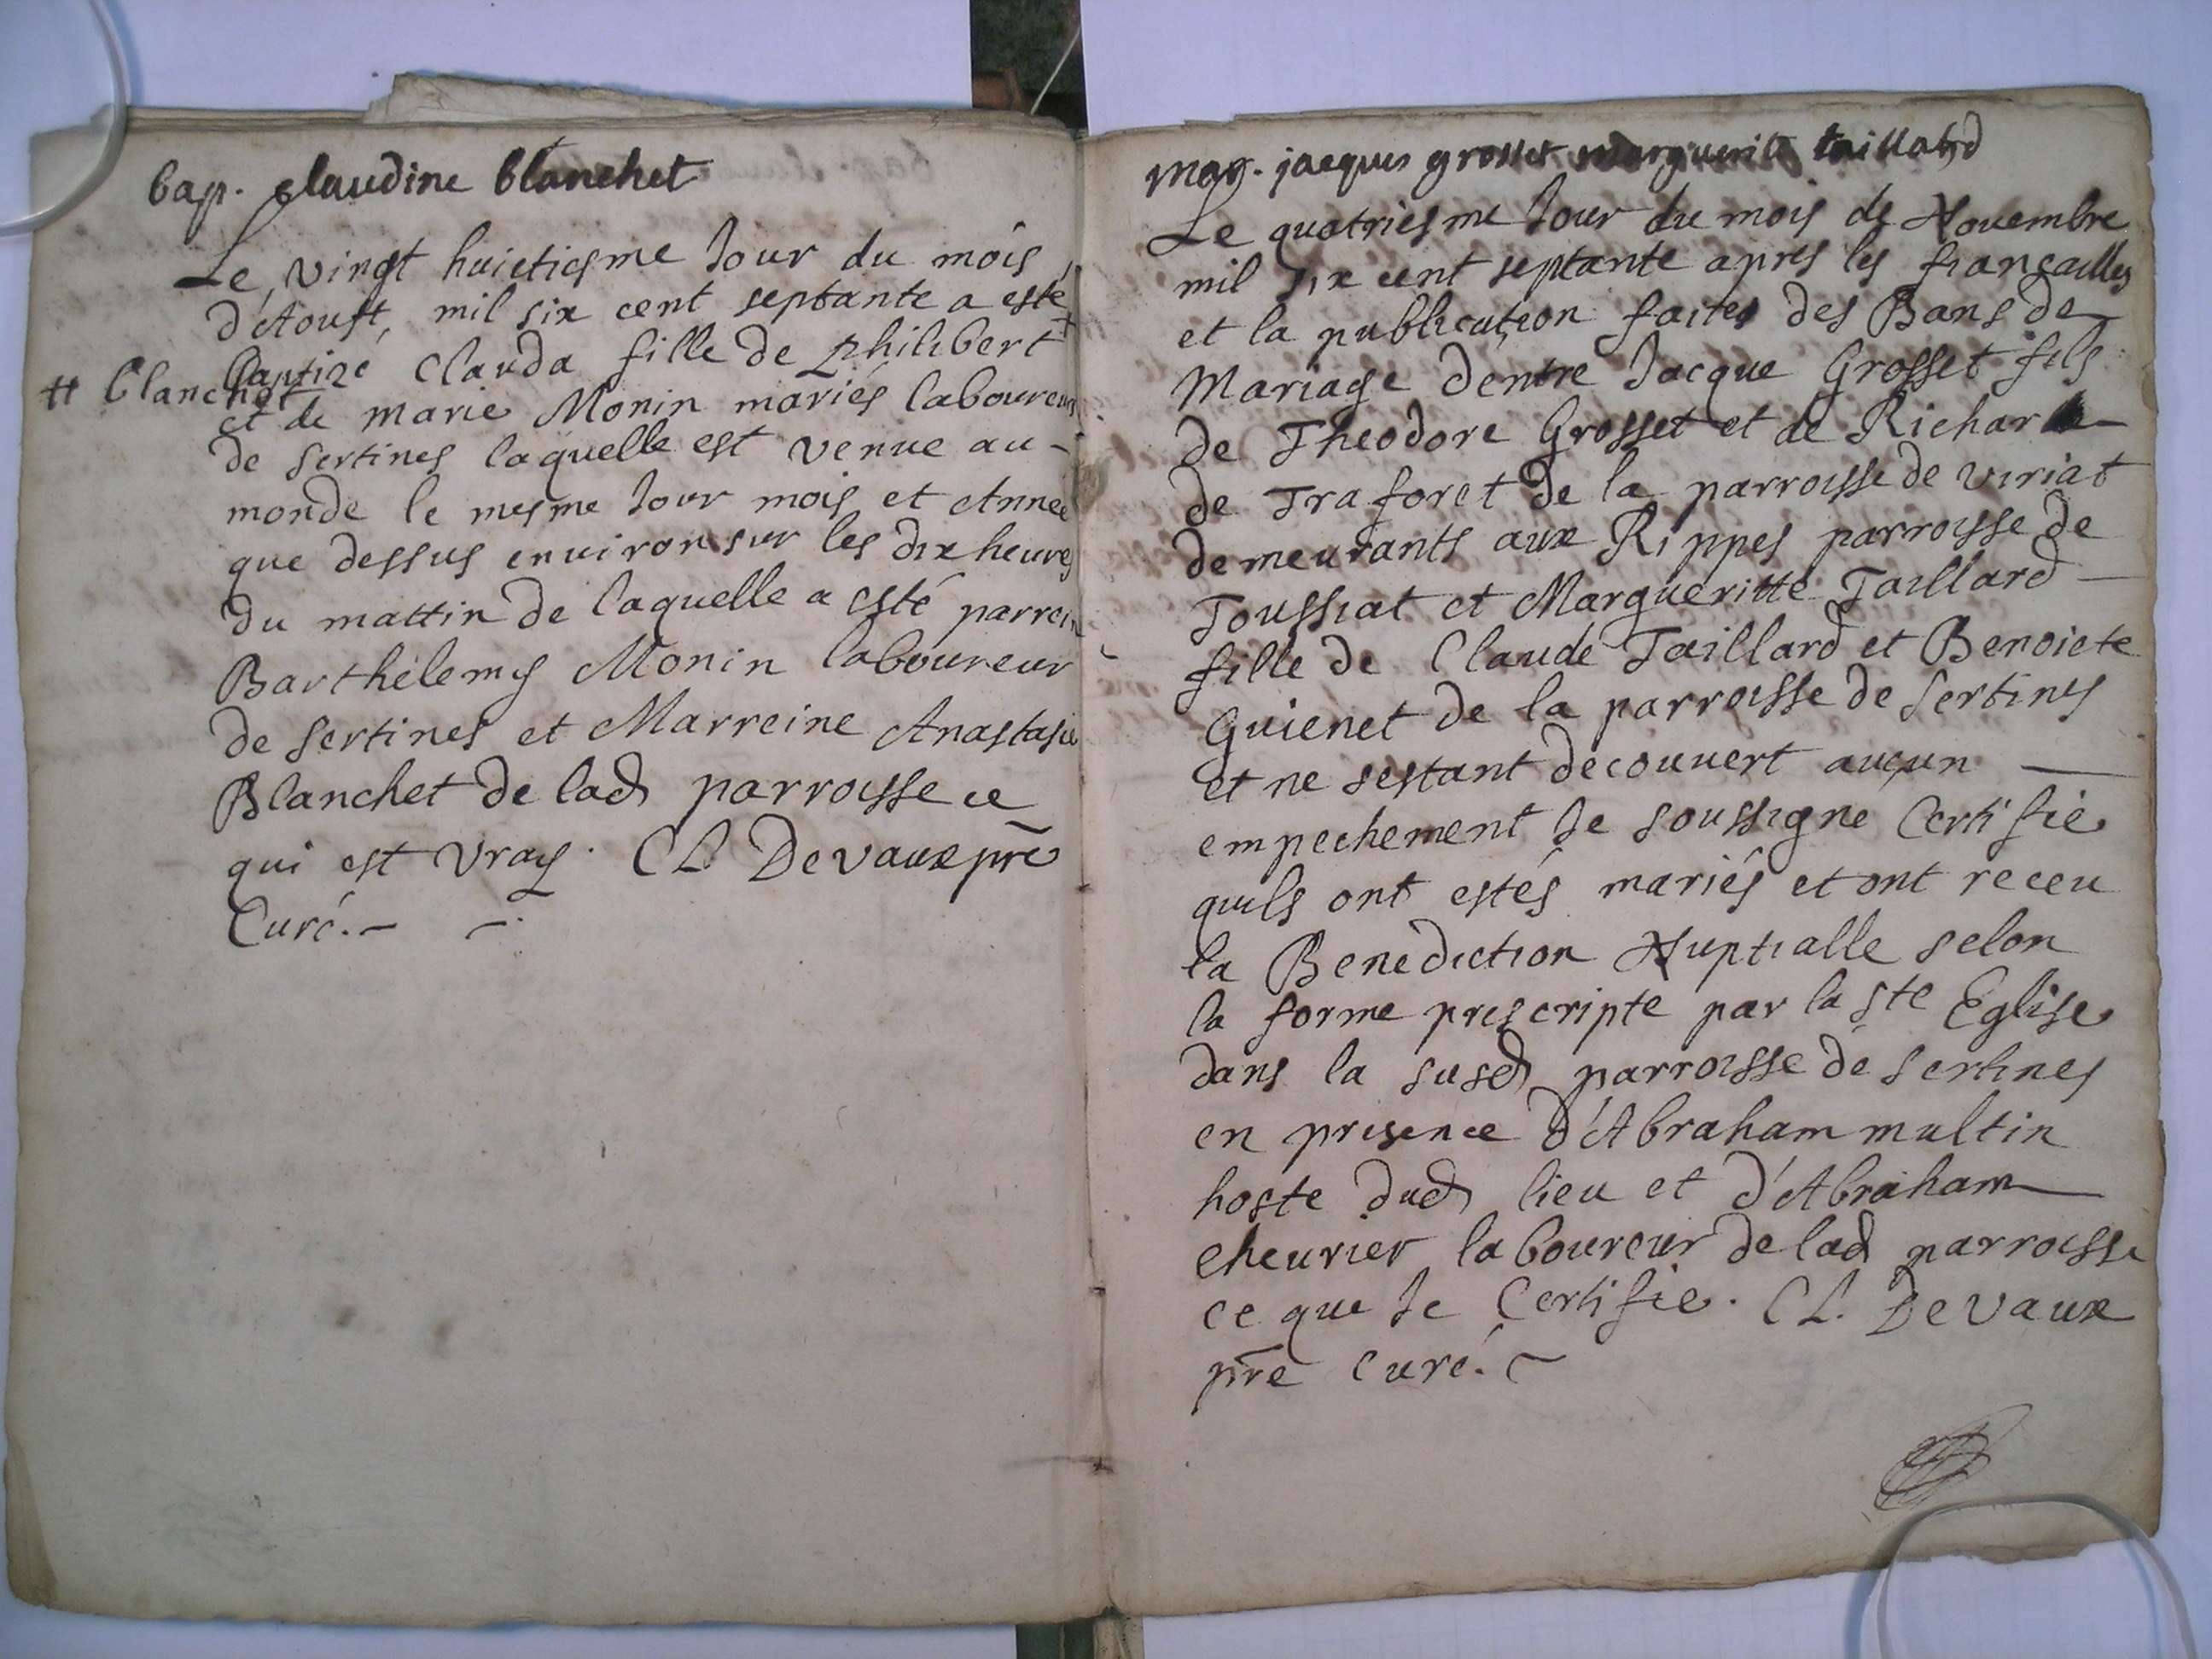 bap. claudine blanchet
Le vingt huictiesme Jour du mois
d'Aoust, mil six cent septante a esté
baptizé Clauda fille de Philibert #
# Blanchet
et de marie Monin mariés laboureurs
de Sertines laquelle est venue au-
monde le mesme Jour mois et Année
que dessus environ sur les dix heures
du mattin de laquelle a esté parrein
Barthelemy Monin laboureur
de Sertines et Marreine Anastasie
Blanchet de lad parroisse ce
qui est vray. CL Devaux pre
Curé. -
mar. jacques grosset marguerite taillard
Le quatriesme Jour du mois de Novembre
mil six cent septante apres les fiançailles
et la publication faites des Bans de
Mariage dentre Jacque Grosset fils
de Theodore Grosset et de Richarde
de Traforet de la parroisse de viriat
demeurants aux Rippes parroisse de
Toussiat et Margueritte Taillard
fille de Claude Taillard et Benoicte
Guienet de la parroisse de Sertines
et ne sestant decouvert aucun
empechement Je soussigne Certifie
quils ont estés mariés et ont receu
la Benediction Nuptialle selon
la forme prescripte par la ste Eglise
dans la susd parroisse de Sertines
en presence d'Abraham multin
hoste dud lieu et d'Abraham
cheurier laboureur de lad parroisse
ce que Je Certifie. CL. Devaux
pre Curé.